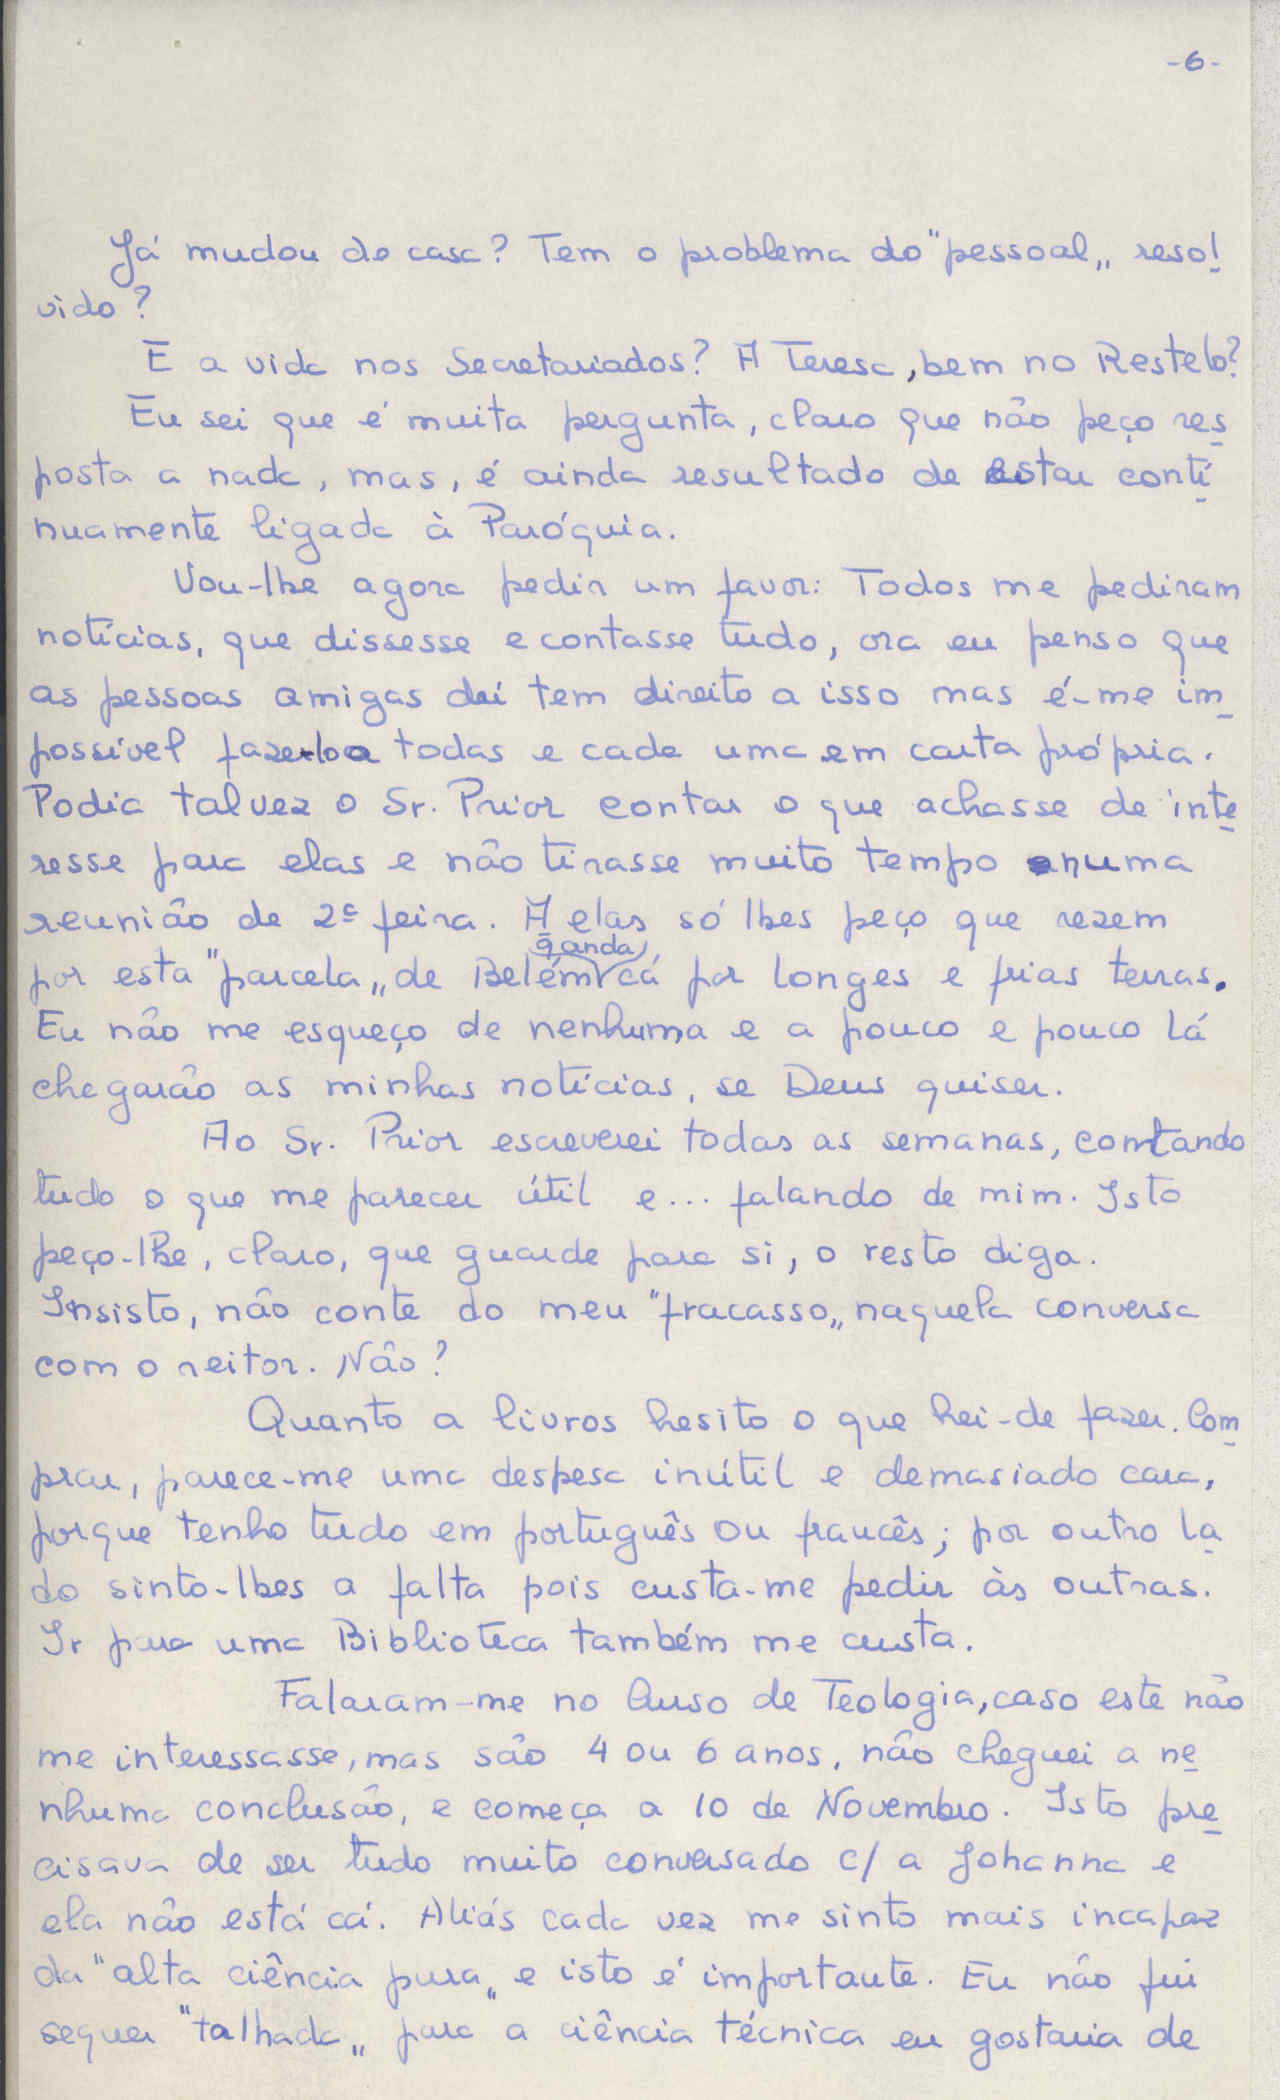 -6-
Já mudou de casa? Tem o problema do "pessoal„ resol
vido?
E a vida nos Secretariados? A Teresa, bem no Restelo?
Eu sei que é muita pergunta, claro que não peço res
posta a nada, mas, é ainda resultado de estar contí
nuamente ligada à Paróquia.
Vou-lhe agora pedir um favor: Todos me pediram
notícias, que dissesse e contasse tudo, ora eu penso que
as pessoas amigas daí tem direito a isso mas é-me im
possível fazê-lo a todas e cada uma em carta própria.
Podia talvez o Sr. Prior contar o que achasse de inte
resse para elas e não tirasse muito tempo numa
reunião de 2ª feira. A elas só lhes peço que rezem
q. anda
por esta "parcela„ de Belém cá por longes e frias terras.
Eu não me esqueço de nenhuma e a pouco e pouco lá
chegarão as minhas notícias, se Deus quiser.
Ao Sr. Prior escreverei todas as semanas, contando
tudo o que me parecer útil e... falando de mim. Isto
peço-lhe, claro, que guarde para si, o resto diga.
Insisto, não conte do meu "fracasso„ naquela conversa
com o reitor. Não?
Quanto a livros hesito o que hei-de fazer. Com
prar, parece-me uma despesa inútil e demasiado cara,
porque tenho tudo em português ou francês; por outro la
do sinto-lhes a falta pois custa-me pedir às outras.
Ir para uma Biblioteca também me custa.
Falaram-me no Curso de Teologia, caso este não
me interessasse, mas são 4 ou 6 anos, não cheguei a ne
nhuma conclusão, e começa a 10 de Novembro. Isto pre
cisava de ser tudo muito conversado c/ a Johanna e
ela não está cá. Aliás cada vez me sinto mais incapaz
da "alta ciência pura„ e isto é importante. Eu não fui
sequer "talhada„ para a ciência técnica eu gostaria de